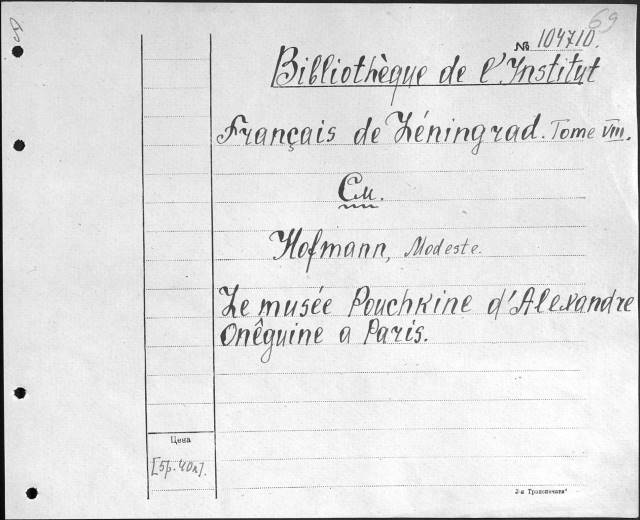 69
№ 104710.
Bibliothèque de l'Institut
Français de Léningrad. Tome VIII.
См.
Hofmann, Modeste.
Le musée Pouchkine d'Alexandre
Onêguine a Paris.
Цена
[5р. 40к].